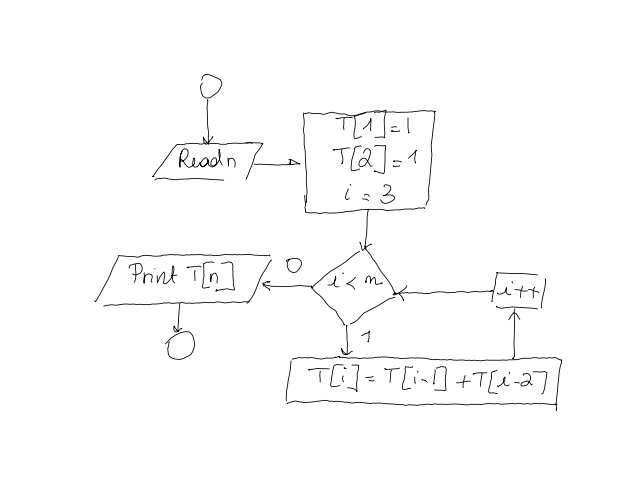 Read n
T[1]=1
T[2]=1
i=3
i<n
0
Print T[n]
1
i++
T[i]=T[i-1]+T[i-2]